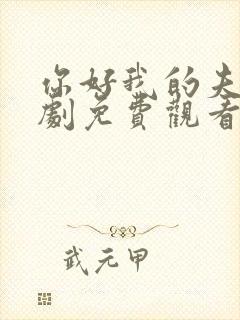 你好我的夫
劇免費觀看
武元甲